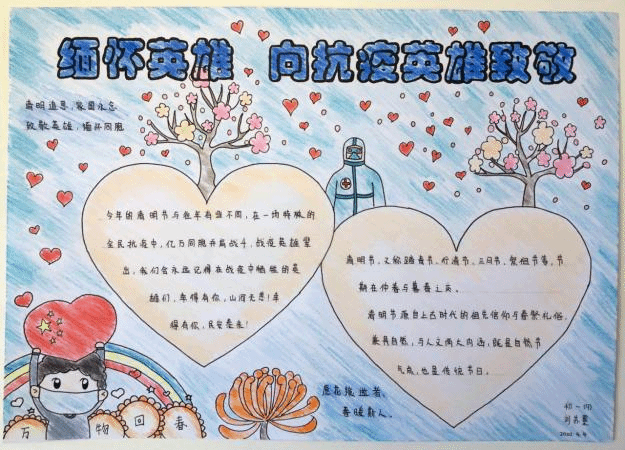 缅怀英雄 向抗疫英雄致敬
清明追思,家国永念
致敬英雄,缅怀同胞
今年的清明节与往年有些不同,在一场特殊的
全民抗疫中,亿万同胞并肩战斗,战疫英雄辈
出,我们会永远记得在战疫中牺牲的英
雄们,幸得有你,山河无恙!幸
得有你,民安泰来!
清明节,又称踏青节、行清节、三月节、祭祖节等,节
期在仲春与暮春之交。
清明节源自上古时代的祖先信仰与春祭礼俗,
兼具自然与人文两大内涵,既是自然节
气点,也是传统节日。
愿花绽逝者,
春暖斯人。
万物回春
初一